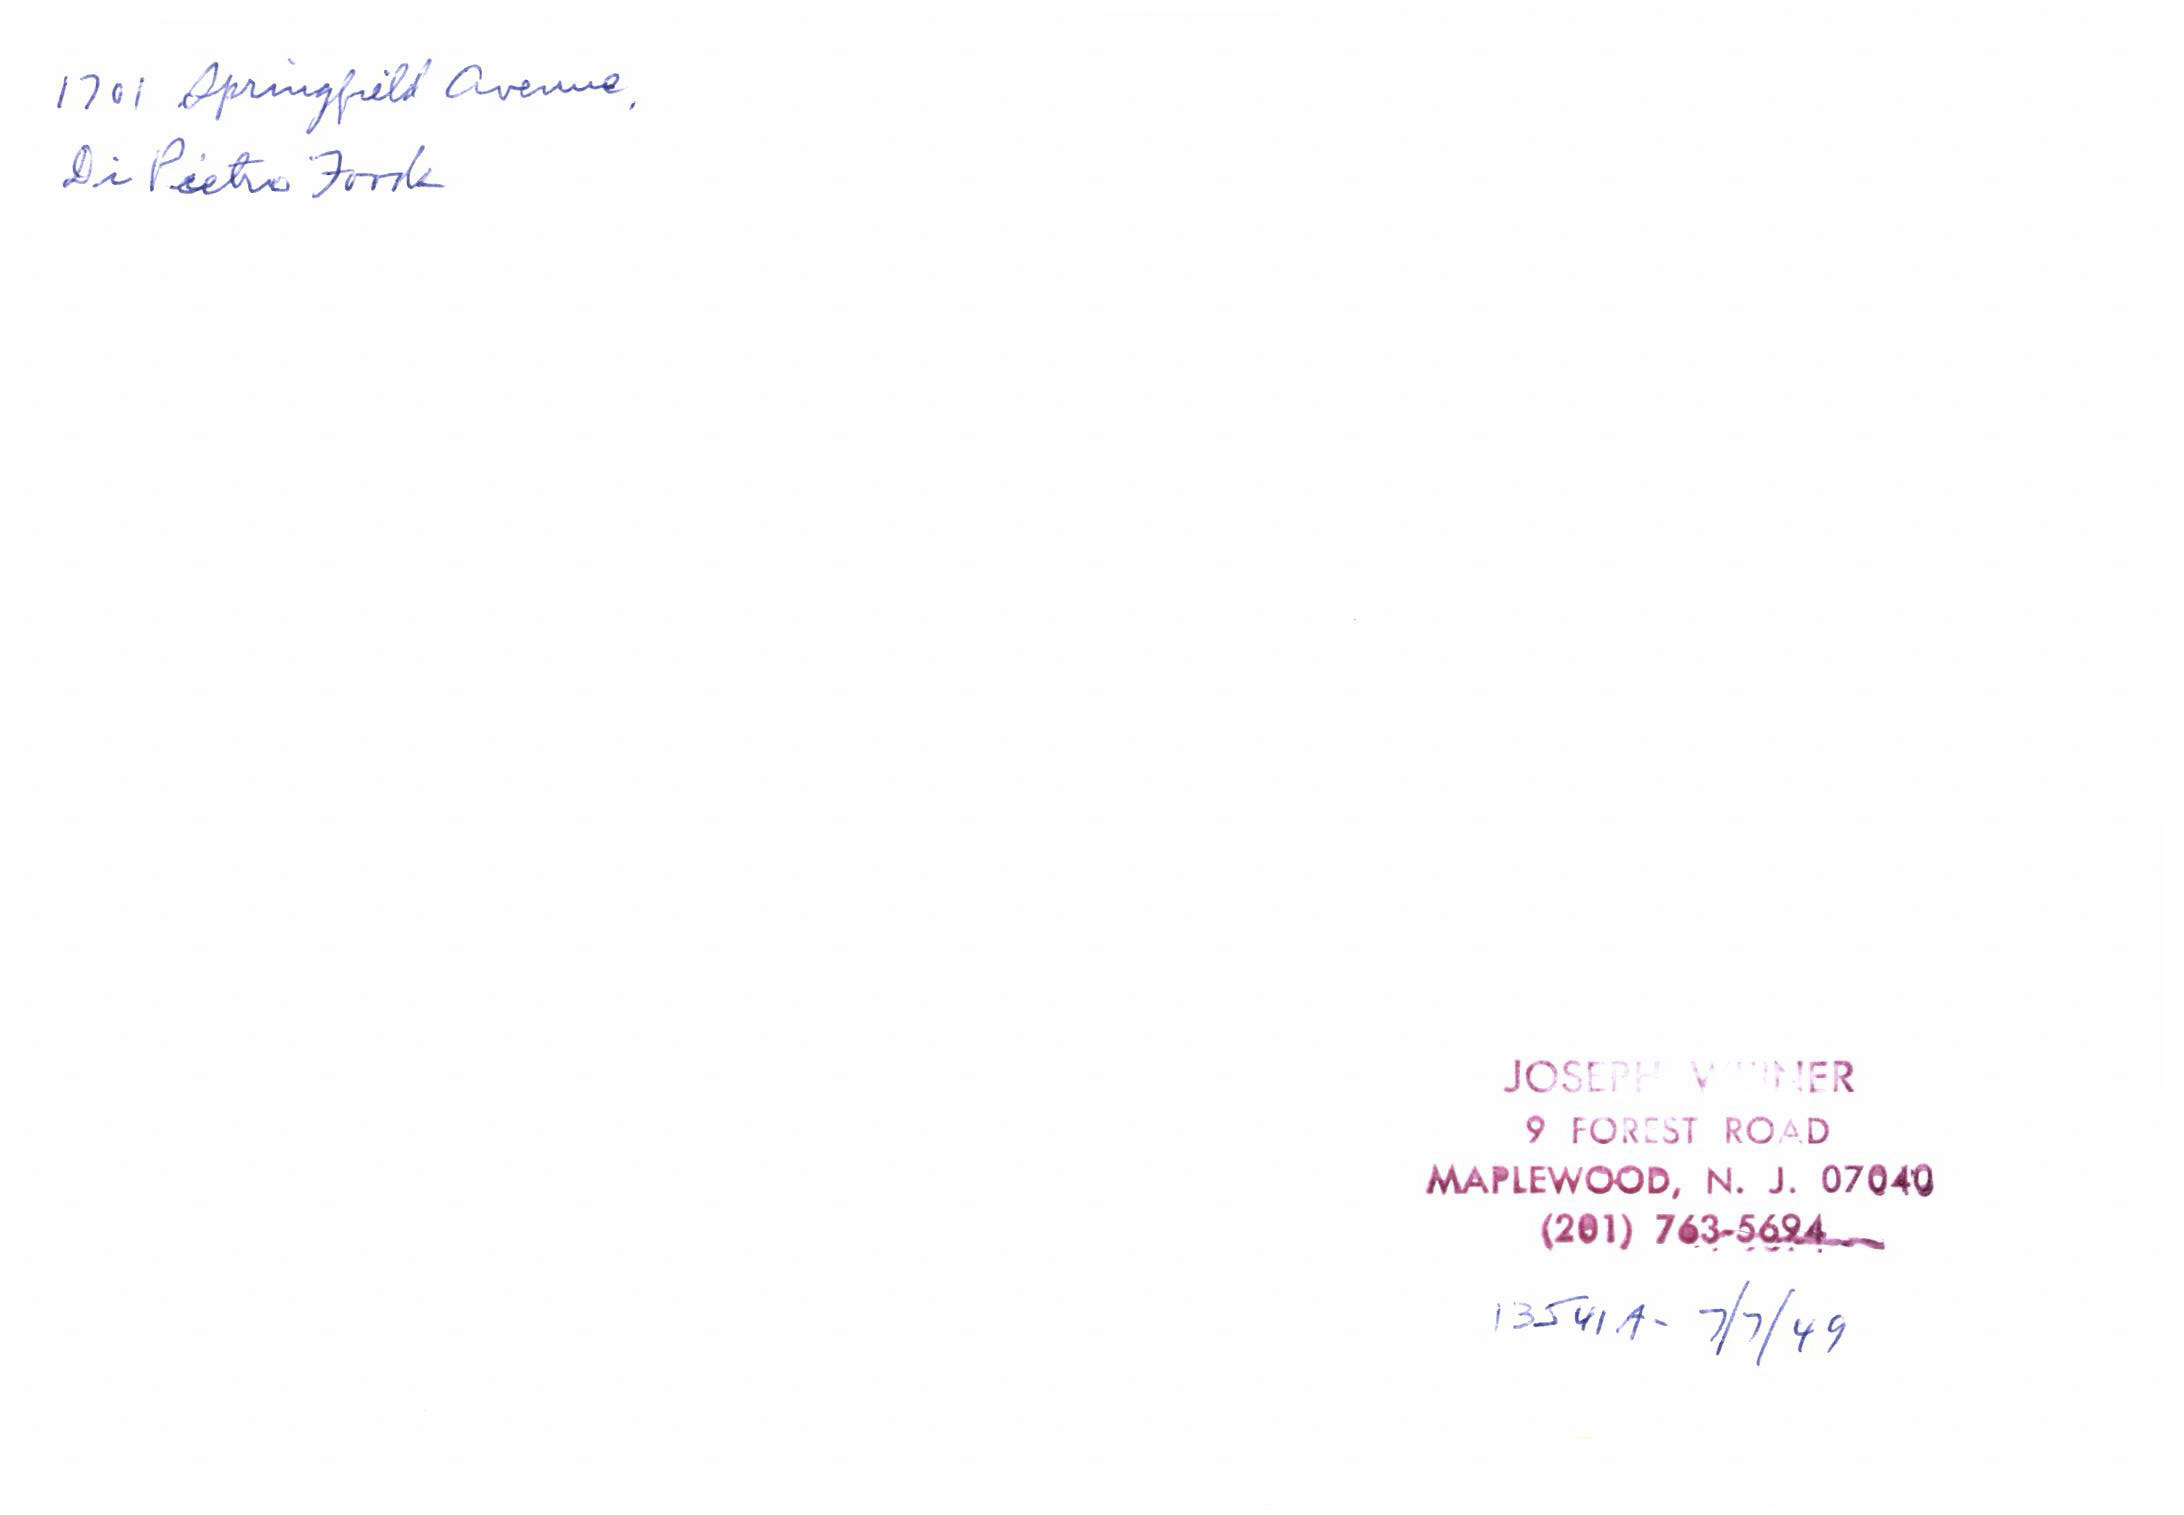 1701 Springfield Avenue,
Di Pietro Foods
JOSEPH
9 FOREST ROAD
MAPLEWOOD, N. J. 07040
(201) 763-5694
13541A- 7/7/49